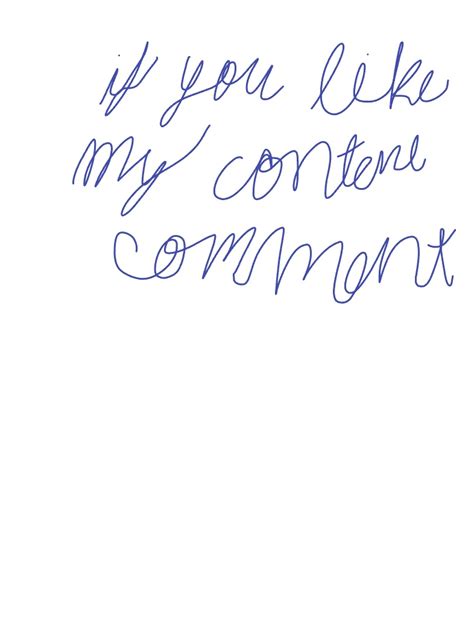 if you like
my content
comment